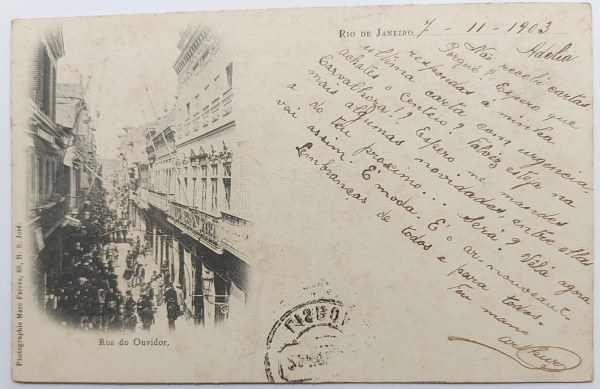 RIO DE JANEIRO, 7 - 11 - 1903
Adelia
Não recebi cartas
Porque? Espero que
respondas á minha
ultima carta com urgencia.
achates o Centeio? Talvez esteja na
Carvalhoza!? Espero me mandes
mais algumas novidades, entre ellas
a do teu proximo... Será? Vela agora
vai assim. E' moda. E' o ar-nouveau.
Lembranças de todos e para todos.
Teu mano
Rua do Ouvidor,
Photographia Marc Ferrez, 88, R. S. José.
LISBOA